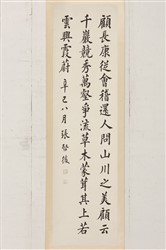 顧長康從會稽還人問山川之美顧云
千巖競秀萬壑爭流草木蒙茸其上若
雲興霞蔚 辛已八月 張啓後